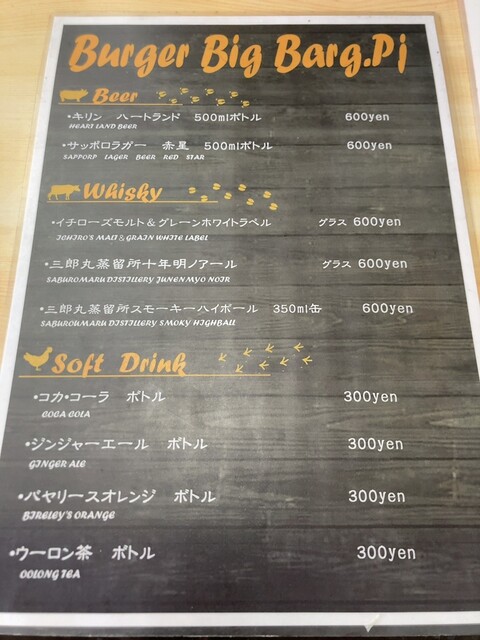 Burger Big Barg.Pj
Beer
・キリン ハートランド 500mlボトル 600yen
HEART LAND BEER
・サッポロラガー 赤星 500mlボトル 600yen
SAPPORP LAGER BEER RED STAR
Whisky
・イチローズモルト＆グレーンホワイトラベル グラス 600yen
ICHIRO'S MALT & GRAIN WHITE LABEL
・三郎丸蒸留所十年明ノアール グラス 600yen
SABUROMARU DISTILLERY JUNEN MYO NOIR
・三郎丸蒸留所スモーキーハイボール 350ml缶 600yen
SABUROUMARU DISTILLERY SMOKY HIGHBALL
Soft Drink
・コカ・コーラ ボトル 300yen
COCA COLA
・ジンジャーエール ボトル 300yen
GINGER ALE
・バヤリースオレンジ ボトル 300yen
BIRELEY'S ORANGE
・ウーロン茶 ボトル 300yen
OOLONG TEA